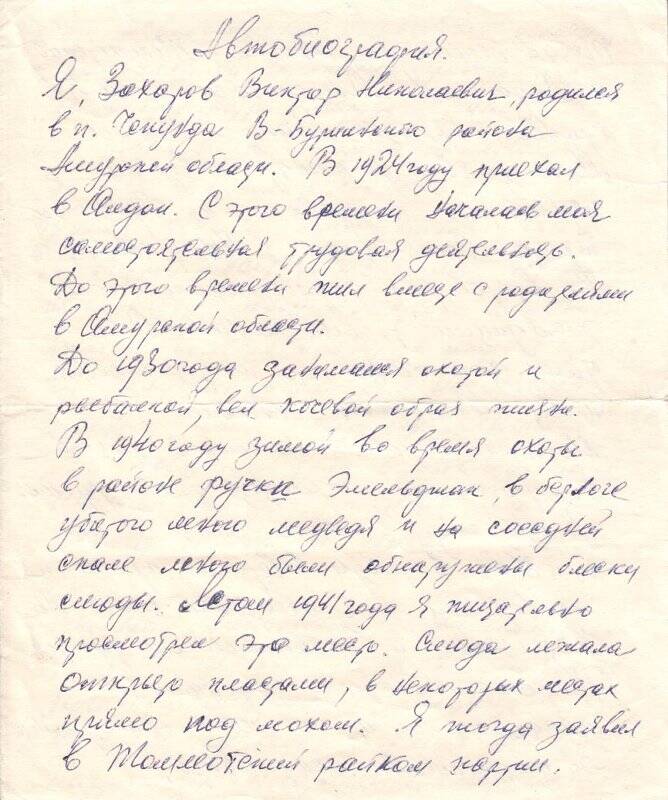 Автобиография.
Я, Захаров Виктор Николаевич, родился
в п. Чопунда В-Буреинского района
Амурской области. В 1924 году приехал
в Алдан. С этого времени началась моя
самостоятельная трудовая деятельность.
До этого времени жил вместе с родителями
в Амурской области.
До 1930 года занимался охотой и
рыбалкой, вел кочевой образ жизни.
В 1940 году зимой во время охоты
в районе ручки Эмельджак, в берлоге
убитого мною медведя и на соседней
скале мною были обнаружены блески
слюды. Летом 1941 года я тщательно
просмотрел это место. Слюда лежала
открыто пластами, в некоторых местах
прямо под мохом. Я тогда заявил
в Томмотский райком партии.